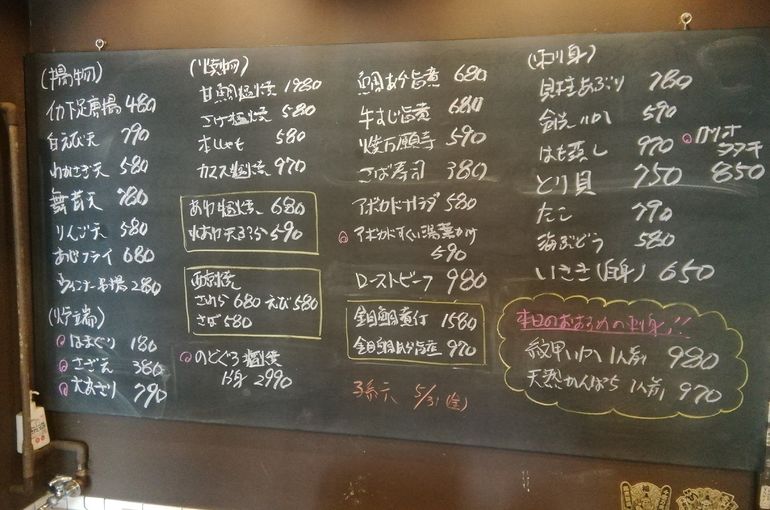 (揚物)
イカ下足唐揚 480
白えび天 790
わかさぎ天 580
舞茸天 780
りんご天 580
あじフライ 680
ウィンナー串揚 280
(炉端)
はまぐり 180
さざえ 380
大あさり 790
(焼物)
甘鯛塩焼 1980
さけ塩焼 580
本ししゃも 580
カマス塩焼 970
あゆ塩焼 680
590
西京焼
さわら 680 えび 580
さば 580
のどぐろ塩焼
2990
鯛あら旨煮 680
牛すじ旨煮 680
焼万願寺 590
さば寿司 380
アボカドサラダ 580
アボカドすくい湯葉かけ
590
ローストビーフ 980
金目鯛煮付 1580
金目鯛あら旨煮 970
5/31 (金)
(刺身)
貝柱あぶり 780
剣先いか 590
はも蒸し 970
カツオ
タタキ
850
とり貝 750
たこ 790
海ぶどう 580
いさき (白身) 650
本日のおすすめの刺身!!
紋甲いか 1人前 980
天然かんぱち 1人前 970